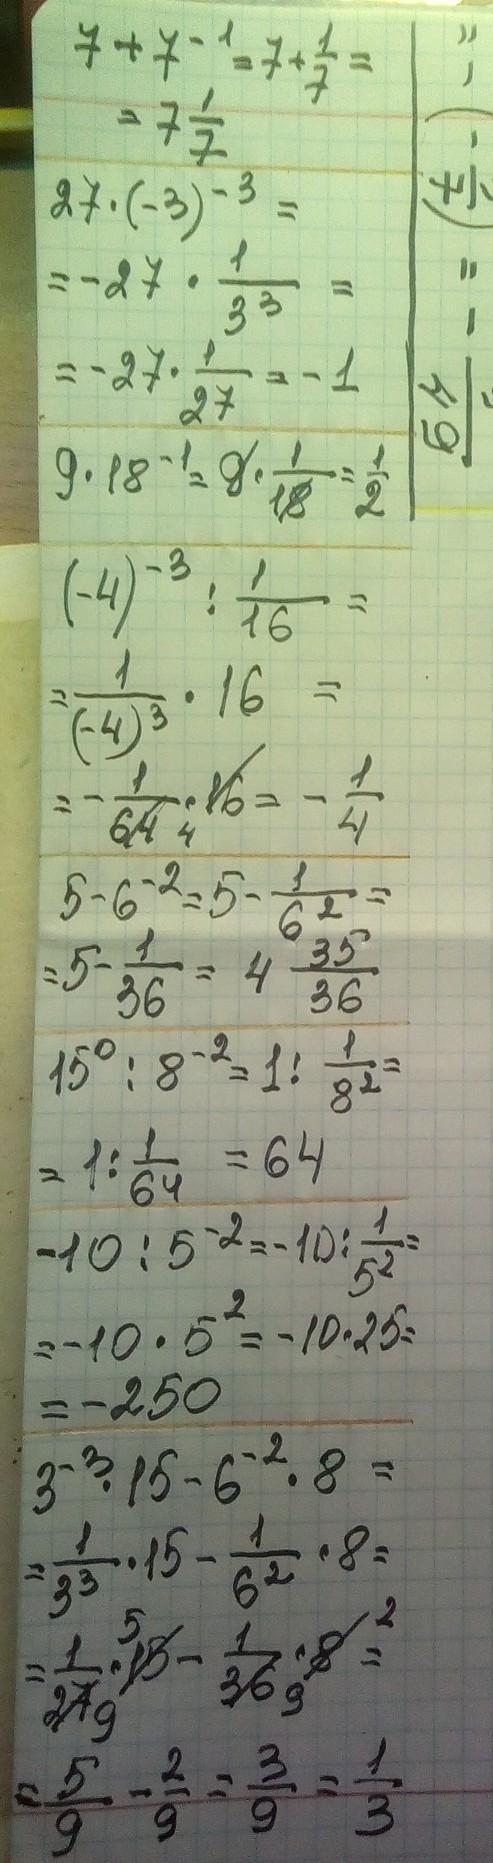 7 + 7⁻¹ = 7 + 1/7 =
= 7 1/7
27 · (-3)⁻³ =
= -27 · 1/3³ =
= -27 · 1/27 = -1
9 · 18⁻¹ = 9 · 1/18 = 1/2
(-4)⁻³ : 1/16 =
= 1/(-4)³ · 16 =
= - 1/64 4 · 16 = - 1/4
5 - 6⁻² = 5 - 1/6² =
= 5 - 1/36 = 4 35/36
15⁰ : 8⁻² = 1 : 1/8² =
= 1 : 1/64 = 64
-10 : 5⁻² = -10 : 1/5² =
= -10 · 5² = -10 · 25 =
= -250
3⁻³ · 15 - 6⁻² · 8 =
= 1/3³ · 15 - 1/6² · 8 =
= 1/27 9 · 15 5 - 1/36 9 · 8 2 =
= 5/9 - 2/9 = 3/9 = 1/3